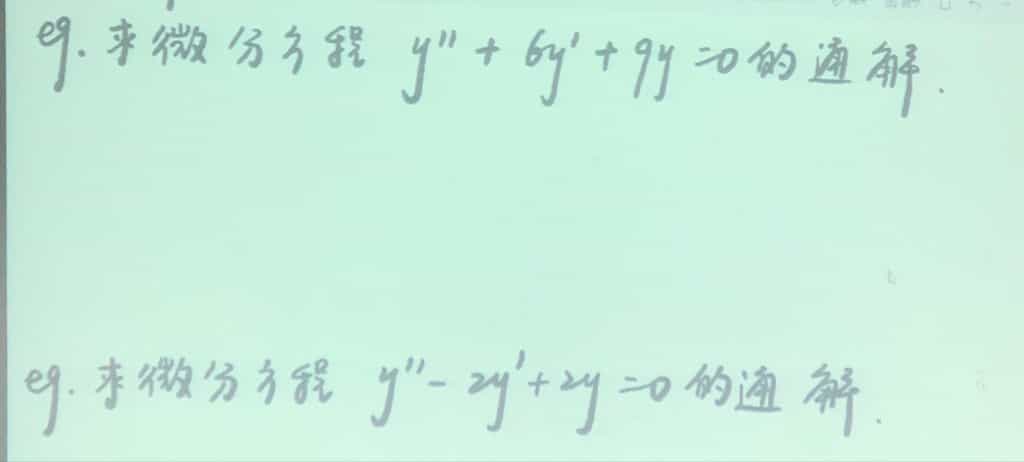 eg. 求微分方程 y'' + 6y' + 9y =0 的通解.
eg. 求微分方程 y'' - 2y' + 2y =0 的通解.